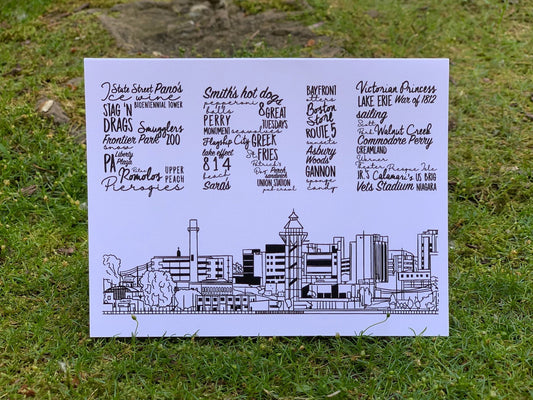 State Street Pano's
Ice wine BICENTENNIAL TOWER
STAG 'N
DRAGS Smugglers
Frontier Park ZOO
snow
PA Liberty
Plaza
Romolos UPPER
PEACH
Pierogies
Smith's hot dogs
pepperoni
balls & GREAT
PERRY TUESDAYS
MONUMENT seawolves
Flagship City GREEK
lake effect St. FRIES
814 Patrick's
Day Perch
sandwich
beach UNION STATION
Sara's pub crawl
BAYFRONT
otters
Boston
Store
ROUTE 5
sunsets
Asbury
Woods
GANNON
sponge
candy
Victorian Princess
LAKE ERIE War of 1812
sailing
Scotty
Walnut Creek
Commodore Perry
CREAMLAND
Warner
Theater Presque Isle
JR.'S Calamari's US BRIG
Vets Stadium NIAGARA